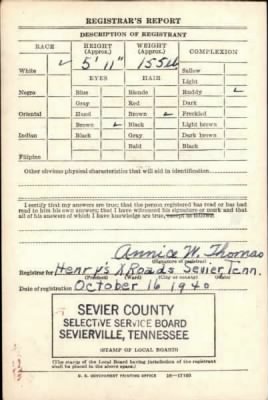 REGISTRAR'S REPORT
DESCRIPTION OF REGISTRANT
RACE HEIGHT (Approx.) WEIGHT (Approx.) COMPLEXION
White ✓ 5' 11" 155 lb Sallow
EYES HAIR Light
Negro Blue Blonde Ruddy ✓
Gray Red Dark
Oriental Hazel Brown ✓ Freckled
Brown ✓ Black Light brown
Indian Black Gray Dark brown
Bald Black
Filipino
Other obvious physical characteristics that will aid in identification
I certify that my answers are true; that the person registered has read or has had
read to him his own answers; that I have witnessed his signature or mark and that
all of his answers of which I have knowledge are true, except as follows:
Annie M. Thomas
(Signature of registrar)
Registrar for Henry's X Roads Sevier, Tenn.
(Precinct) (Ward) (City or county) (State)
Date of registration October 16 1940
SEVIER COUNTY
SELECTIVE SERVICE BOARD
SEVIERVILLE, TENNESSEE
(STAMP OF LOCAL BOARD)
(The stamp of the Local Board having jurisdiction of the registrant
shall be placed in the above space.)
U. S. GOVERNMENT PRINTING OFFICE 16—17105